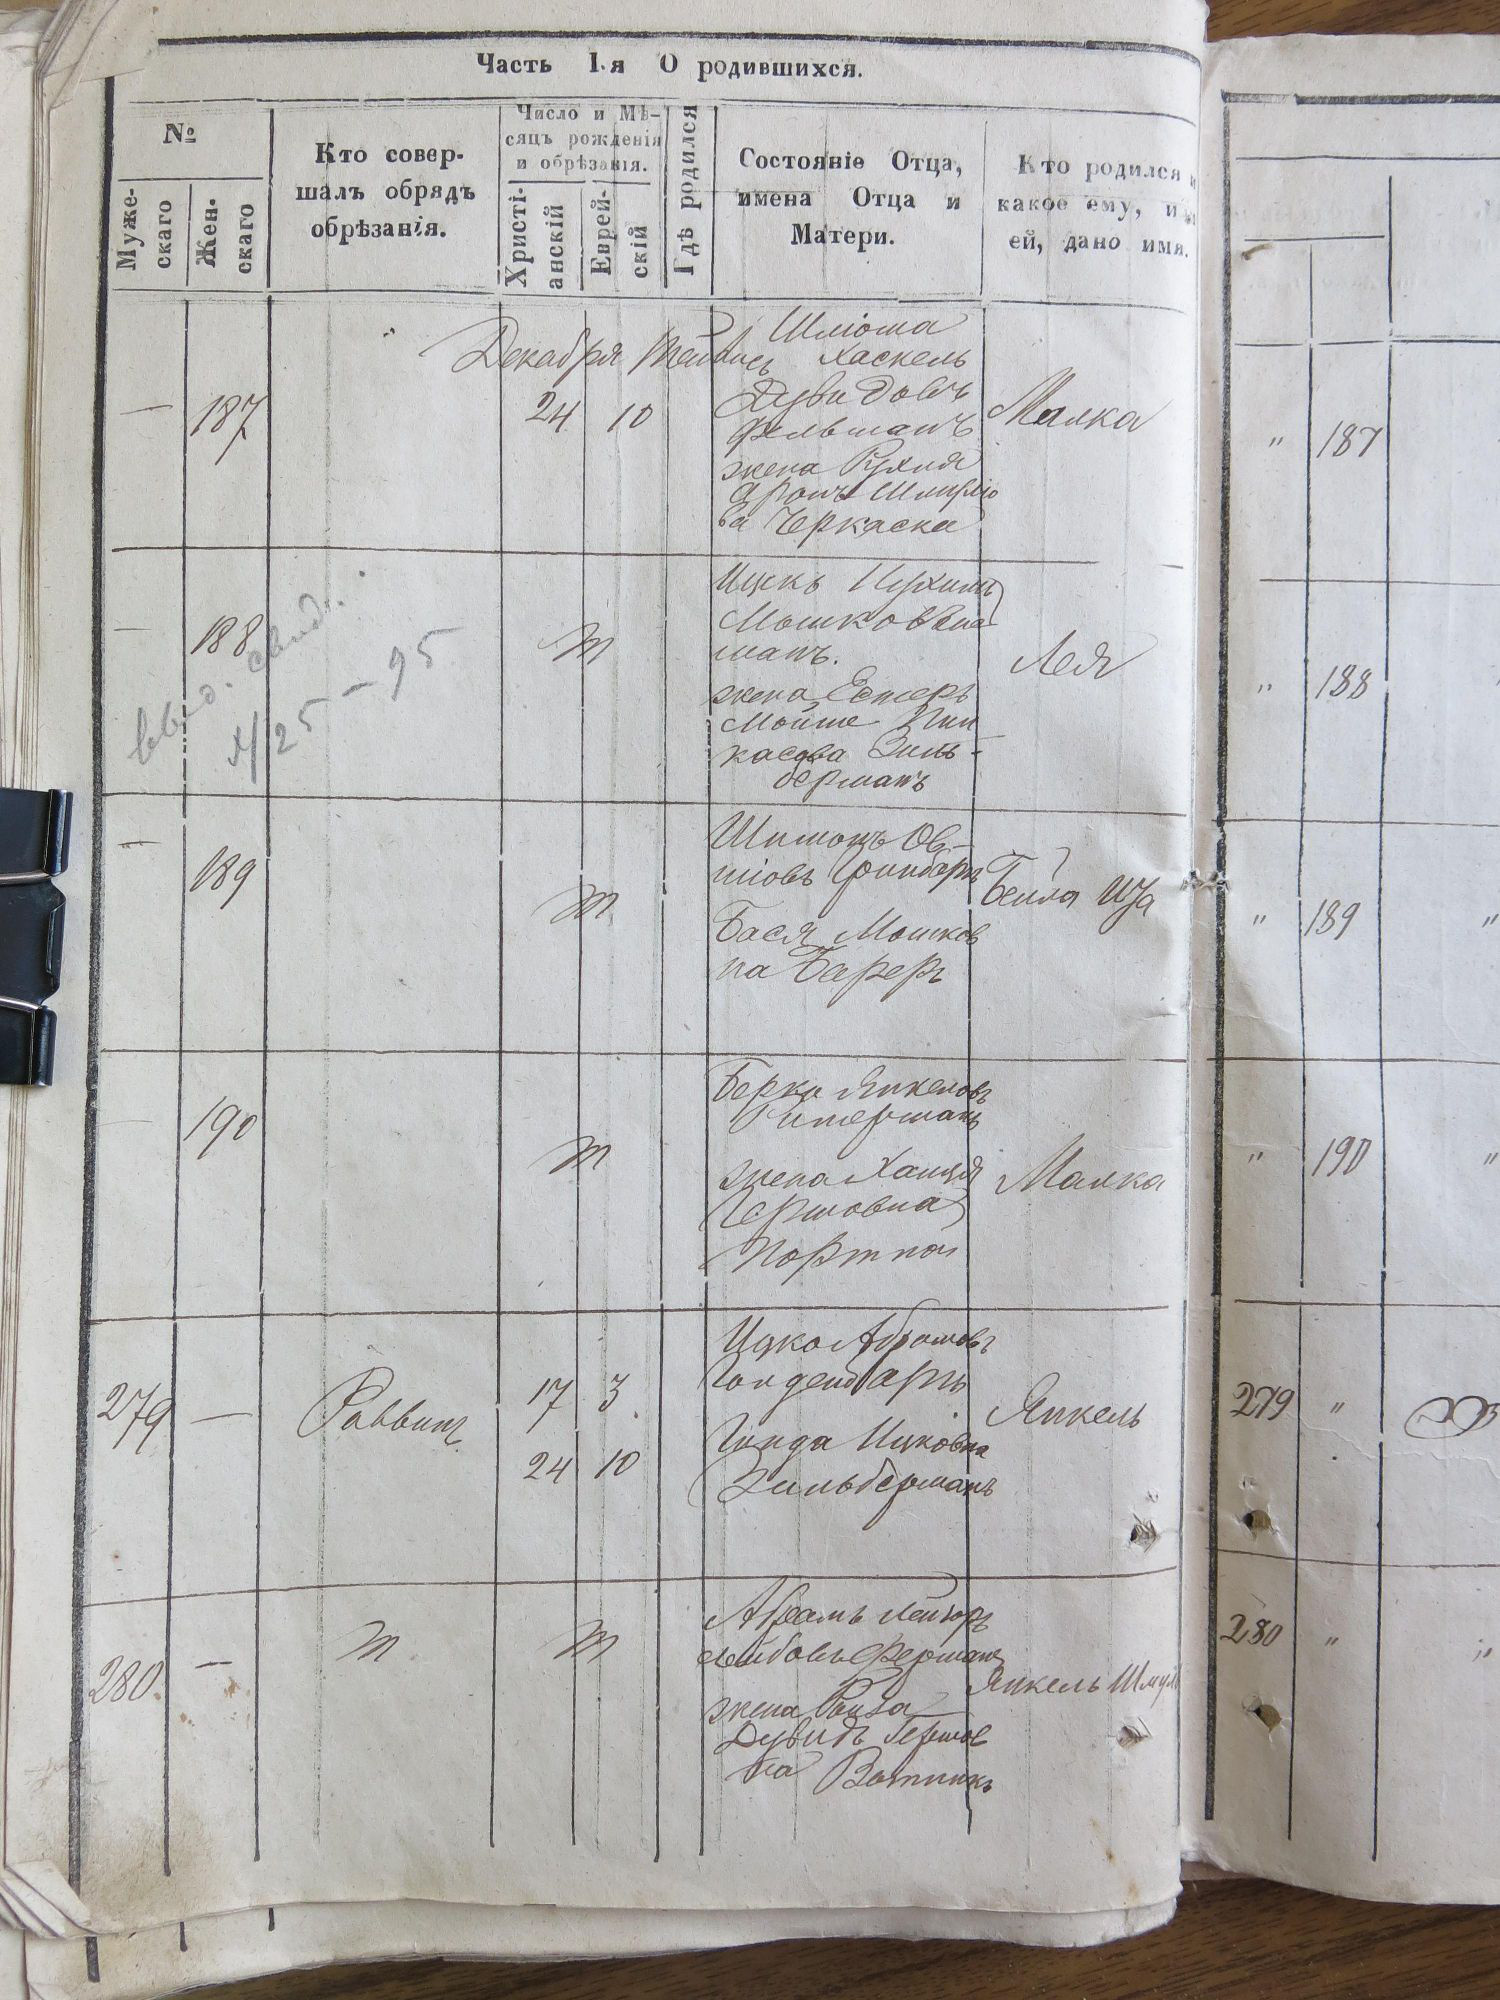 Часть I-я О родившихся.
№
Муже-
скаго
Жен-
скаго
Кто совер-
шалъ обрядъ
обрѣзанія.
Число и Мѣ-
сяцъ рожденія
и обрѣзанія.
Христі-
анскій
Еврей-
скій
Гдѣ родился
Состояніе Отца,
имена Отца и
Матери.
Кто родился и
какое ему, или
ей, дано имя.
Декабря
— 187
24 10
Шліома
Хаскель
Дувидовъ
Фельманъ
жена Рухля
Аронъ
ва Черкаска
Малка
— 188
Ицкъ Нухимъ
манъ.
жена Естеръ
Мойше Пин
касова Зиль-
берманъ
Лея
25 – 95
— 189
Шимонъ Ов-
шіовъ
Бася Мошков
на Бареръ
Бейла
190
Берко Янкеловъ
жена
Гершовна
Портной
Малка
279 —
Раввинъ
17 3
24 10
Ицко Абрамовъ
Голденбаргъ
Голда Ицковна
Зильберманъ
Янкель
280 —
Абрамъ Лейзоръ
Лейбовъ Ферманъ
жена Ройза
Дувидъ Гершов
на
Янкель Шмуль
" 187
" 188
" 189 "
" 190 "
279 "
280 "